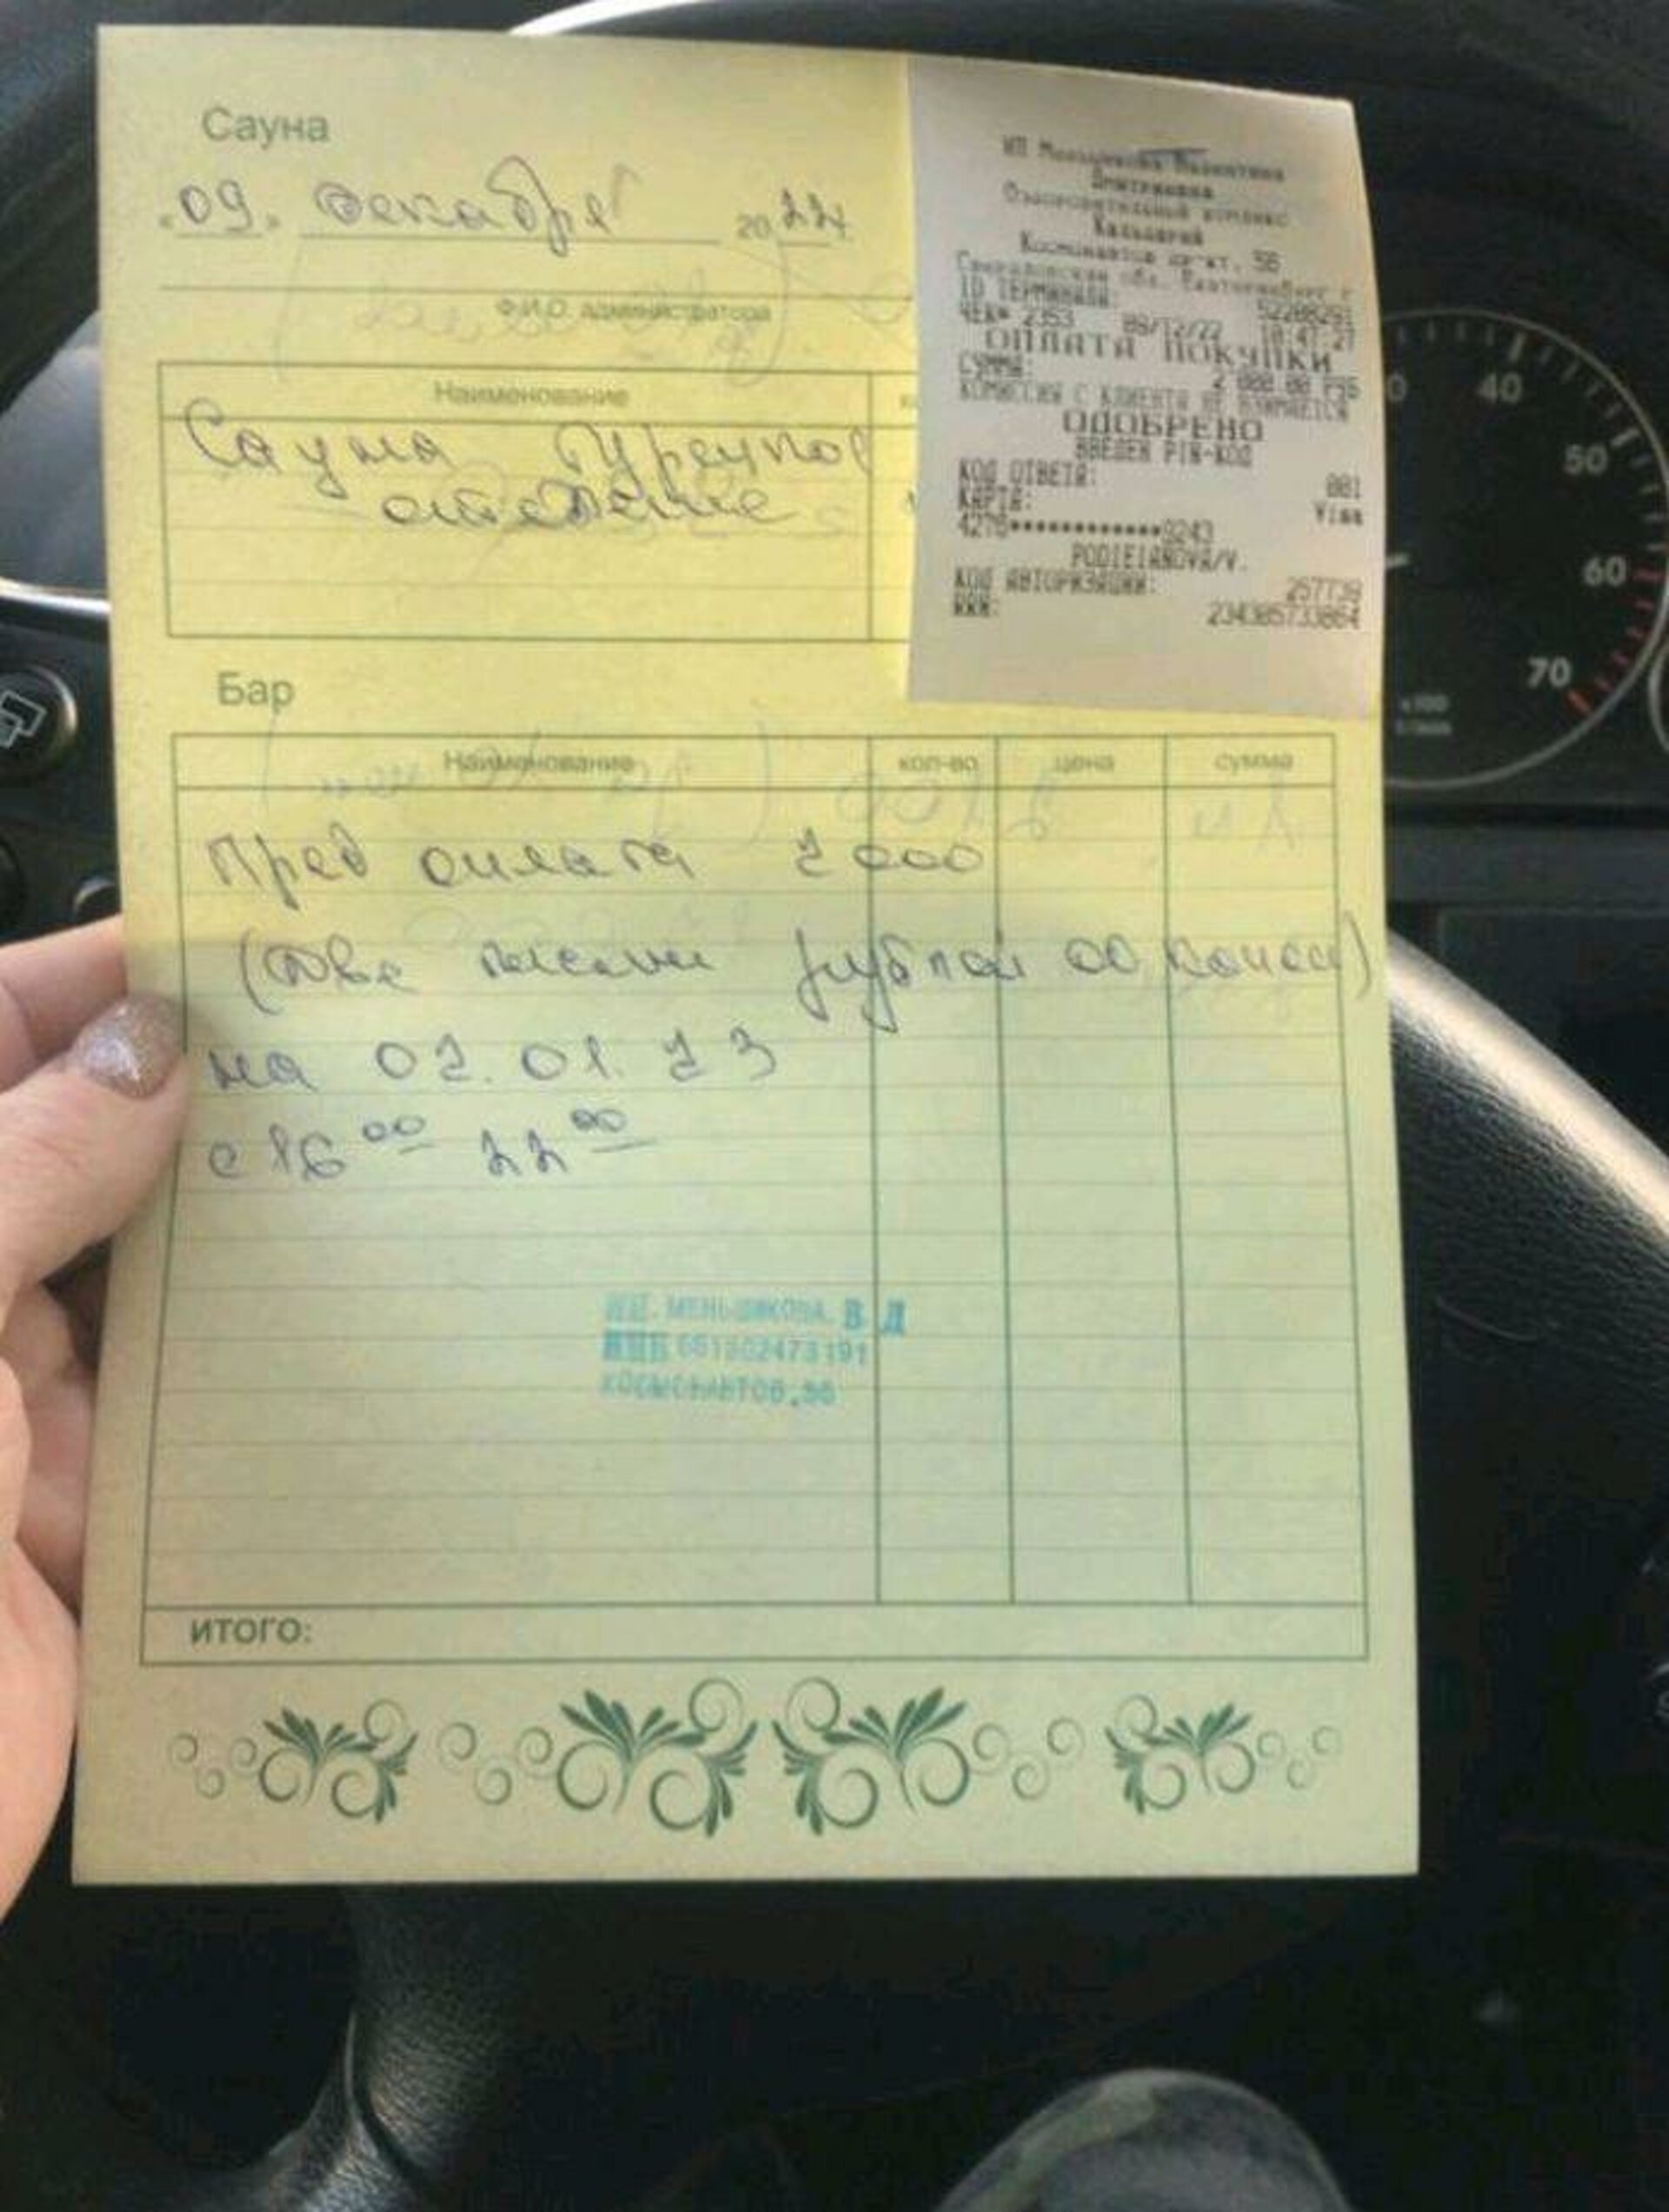 Сауна
"09" декабря 2022г.
Ф.И.О. администратора
Наименование
Сауна Турецкое
отделение
ИП Меньшикова Валентина
Дмитриевна
Оздоровительный комплекс
Космонавтов пр-кт, 56
Свердловская обл, Екатеринбург г
ID ТЕРМИНАЛА: 52288291
ЧЕК# 2353 09/12/22 10:47:27
ОПЛАТА ПОКУПКИ
СУММА: 2 000.00 РУБ
КОМИССИЯ С КЛИЕНТА НЕ ВЗИМАЕТСЯ
ОДОБРЕНО
ВВЕДЕН PIN-КОД
КОД ОТВЕТА: 001
КАРТА: Visa
4276************9243
КОД АВТОРИЗАЦИИ: 257739
234305733864
Бар
Наименование кол-во цена сумма
Пред оплата 2000
(Две тысячи рублей 00 копеек)
на 02.01.23
с 16 00 22 00
ИП. МЕНЬШИКОВА. В Д
ИНН 661302473191
КОСМОНАВТОВ,56
ИТОГО:
40
50
60
70
x100